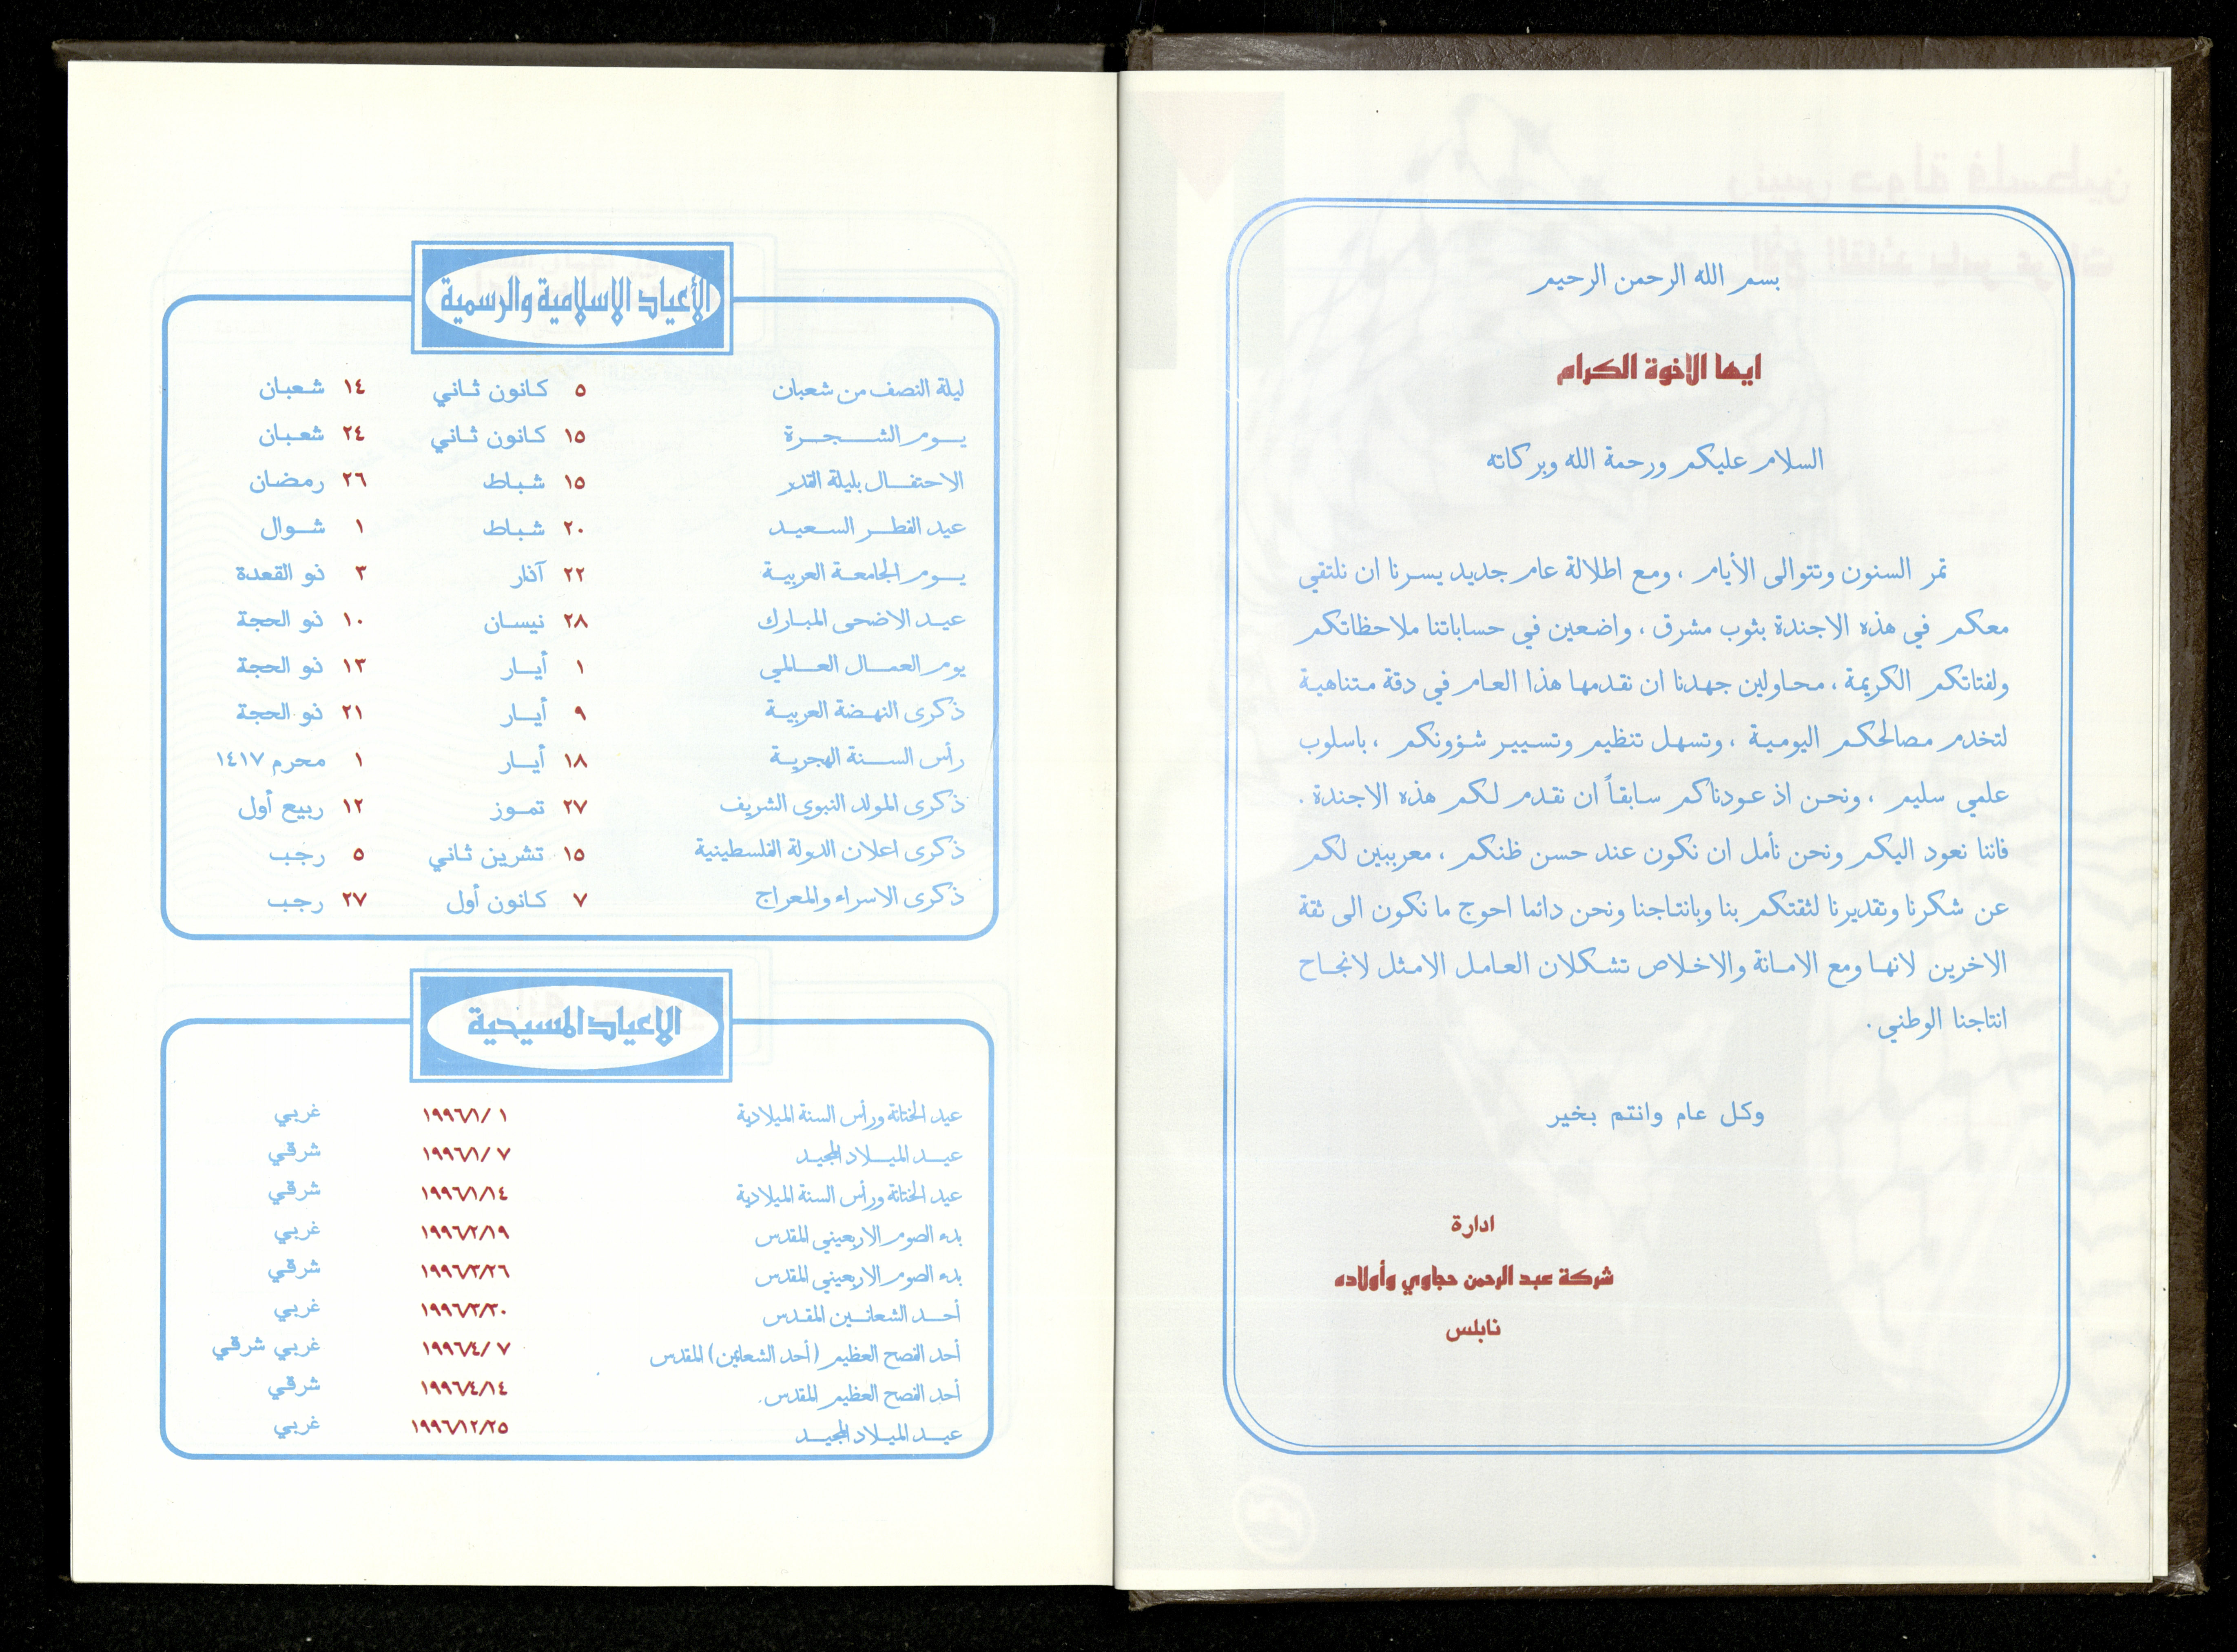 بسم الله الرحمن الرحيم
ايها الاخوة الكرام
السلام عليكم ورحمة الله وبركاته
تمر السنون وتتوالى الأيام ، ومع اطلالة عام جديد يسرنا ان نلتقي
معكم في هذه الاجندة بثوب مشرق ، واضعين في حساباتنا ملاحظاتكم
ولفتاتكم الكريمة ، محاولين جهدنا ان نقدمها هذا العام في دقة متناهية
لتخدم مصالحكم اليومية ، وتسهل تنظيم وتسيير شؤونكم ، باسلوب
علمي سليم ، ونحن اذ عودناكم سابقاً ان نقدم لكم هذه الاجندة .
فاننا نعود اليكم ونحن نأمل ان نكون عند حسن ظنكم ، معربين لكم
عن شكرنا وتقديرنا لثقتكم بنا وبانتاجنا ونحن دائما احوج ما نكون الى ثقة
الاخرين لانها ومع الامانة والاخلاص تشكلان العامل الامثل لانجاح
انتاجنا الوطني .
وكل عام وانتم بخير
ادارة
شركة عبد الرحمن حجاوي وأولاده
نابلس
الأعياد الاسلامية والرسمية
ليلة النصف من شعبان ٥ كانون ثاني ١٤ شعبان
يوم الشجرة ١٥ كانون ثاني ٢٤ شعبان
الاحتفال بليلة القدر ١٥ شباط ٢٦ رمضان
عيد الفطر السعيد ٢٠ شباط ١ شوال
يوم الجامعة العربية ٢٢ آذار ٣ ذو القعدة
عيد الاضحى المبارك ٢٨ نيسان ١٠ ذو الحجة
يوم العمال العالمي ١ أيار ١٣ ذو الحجة
ذكرى النهضة العربية ٩ أيار ٢١ ذو الحجة
رأس السنة الهجرية ١٨ أيار ١ محرم ١٤١٧
ذكرى المولد النبوي الشريف ٢٧ تموز ١٢ ربيع أول
ذكرى اعلان الدولة الفلسطينية ١٥ تشرين ثاني ٥ رجب
ذكرى الاسراء والمعراج ٧ كانون أول ٢٧ رجب
الاعياد المسيحية
عيد الختانة ورأس السنة الميلادية ١٩٩٦/١/١ غربي
عيد الميلاد المجيد ١٩٩٦/١/٧ شرقي
عيد الختانة ورأس السنة الميلادية ١٩٩٦/١/١٤ شرقي
بدء الصوم الاربعيني المقدس ١٩٩٦/٢/١٩ غربي
بدء الصوم الاربعيني المقدس ١٩٩٦/٢/٢٦ شرقي
أحد الشعانين المقدس ١٩٩٦/٣/٣٠ غربي
أحد الفصح العظيم (أحد الشعانين) المقدس ١٩٩٦/٤/٧ غربي شرقي
أحد الفصح العظيم المقدس ١٩٩٦/٤/١٤ شرقي
عيد الميلاد المجيد ١٩٩٦/١٢/٢٥ غربي